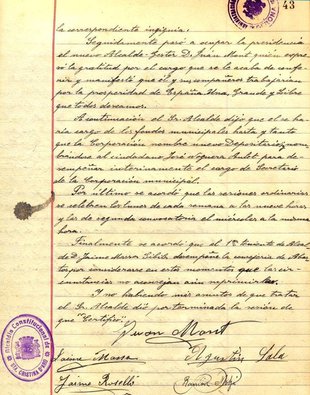 43
la correspondiente insignia.
Seguidamente pasó a ocupar la presidencia
el nuevo Alcalde-Gestor D. Juan Mont quien expre-
só la gratitud por el cargo que se le acaba de confe-
rir y manifestó que él y sus compañeros trabajarían
por la prosperidad de España Una, Grande y Libre
que todos deseamos.
A continuación el Sr. Alcalde dijo que él se ha-
ría cargo de los fondos municipales hasta y tanto
que la Corporación nombre nuevo Depositario, nom-
brándose al ciudadano José Noguera para de-
sempeñar interinamente el cargo de Secretario
de la Corporación municipal.
Por último se acordó que las sesiones ordinarias
se celebren los lunes de cada semana a las nueve horas
y las de segunda convocatoria el miércoles a la misma
hora.
Finalmente se acordó que el 1er Teniente de Alcal-
de D. Jaime Massa desempeñe la consejería de Abas-
tos por considerarse en estos momentos que las cir-
cunstancias no aconsejan aun suprimirlas.
Y no habiendo más asuntos de que tratar
el Sr. Alcalde dió por terminada la sesión de
que "Certifico".
Juan Mont
Jaime Massa Agustín Sala
Jaime Roselló Ramón
Alcaldía Constitucional de